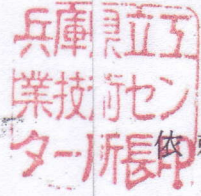 兵庫県立工
業技術セン
ター所長印
依